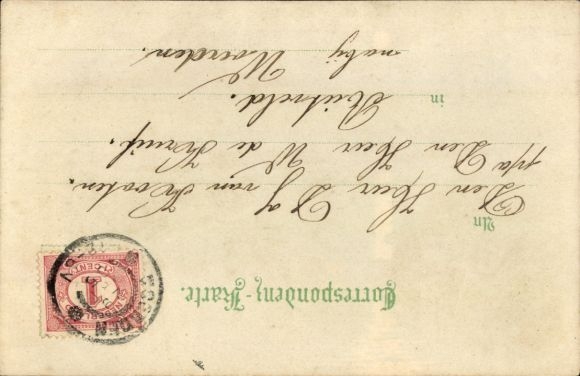 Correspondenz-Karte.
An
Den Heer D J van Kooten.
p/a Den Heer W de Kruif.
in Rietveld.
nabij Woerden.
1 CENT